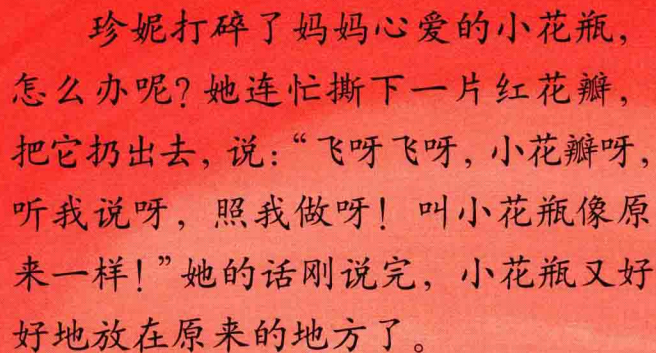 珍妮打碎了妈妈心爱的小花瓶，
怎么办呢？她连忙撕下一片红花瓣，
把它扔出去，说：“飞呀飞呀，小花瓣呀，
听我说呀，照我做呀！叫小花瓶像原
来一样！”她的话刚说完，小花瓶又好
好地放在原来的地方了。